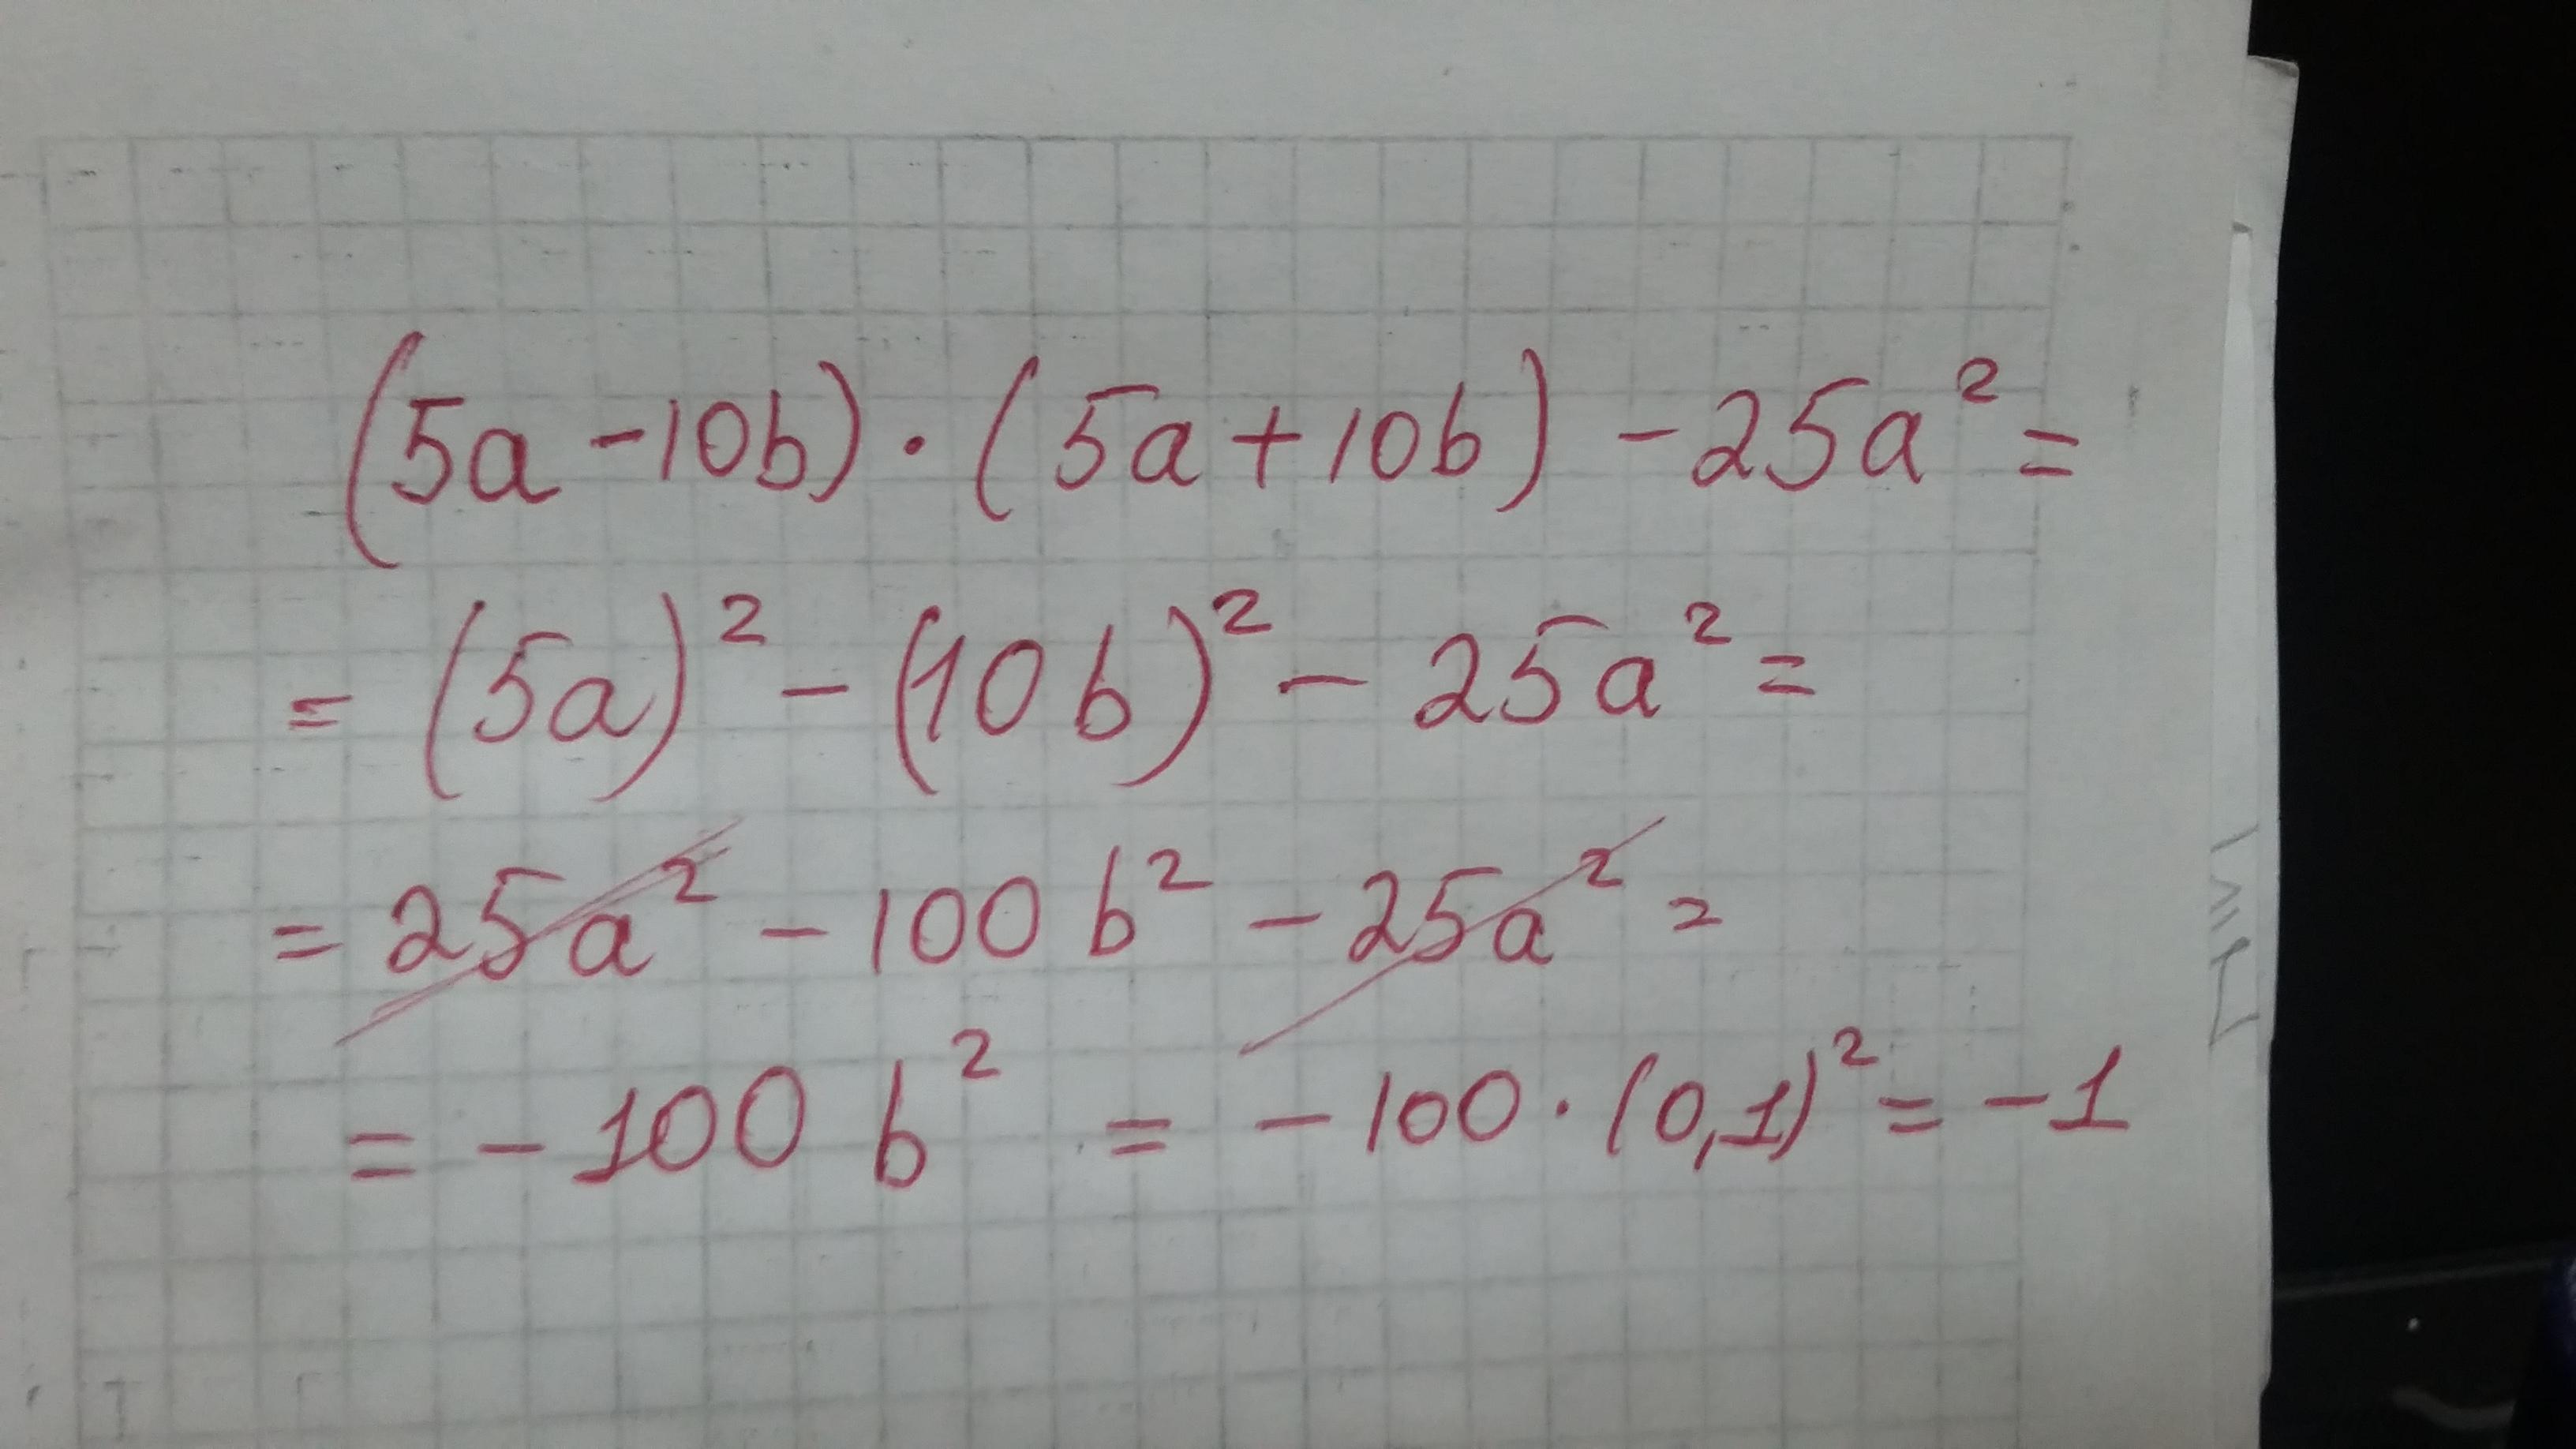 (5a-10b)·(5a+10b)-25a²=
=(5a)²-(10b)²-25a²=
=25a²-100b²-25a²=
=-100b²=-100·(0,1)²=-1